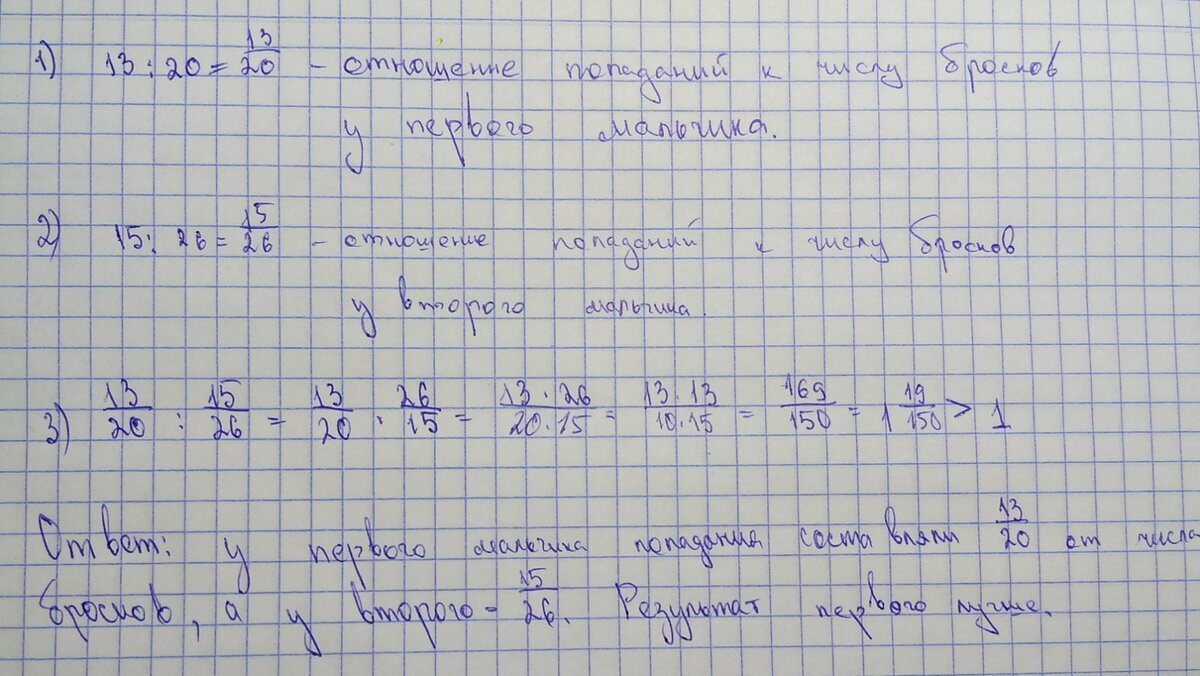 1) 13 : 20 = 13/20 - отношение попаданий к числу бросков
у первого мальчика.
2) 15 : 26 = 15/26 - отношение попаданий к числу бросков
у второго мальчика.
3) 13/20 : 15/26 = 13/20 · 26/15 = 13 · 26/20 · 15 = 13 · 13/10 · 15 = 169/150 = 1 19/150 > 1
Ответ: у первого мальчика попадания составляли 13/20 от числа
бросков, а у второго - 15/26. Результат первого лучше.